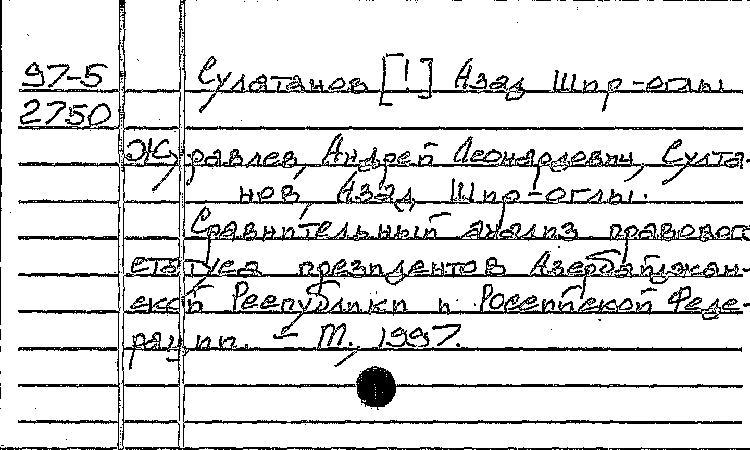 97-5 Сулатанов [!] Азад Шир-оглы
2750
Журавлев, Андрей Леонардович, Султа-
нов, Азад Шир-оглы.
Сравнительный анализ правового
статуса президентов Азербайджан-
ской Республики и Российской Феде-
рации. – М., 1997.